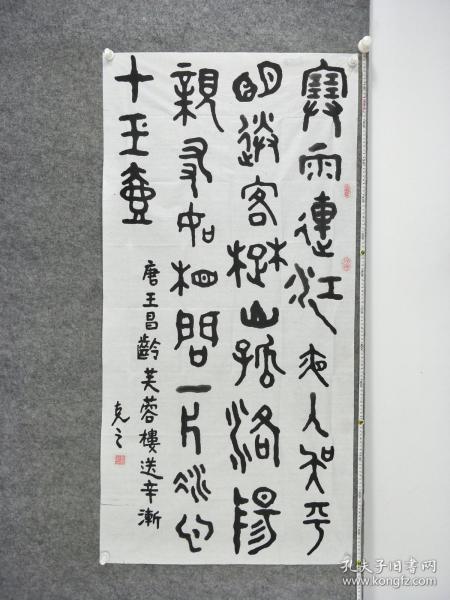 寒雨連江夜入吳平
明送客楚山孤洛陽
親友如相問一片冰心
在玉壺
唐王昌齡芙蓉樓送辛漸
克之
孔夫子旧书网
www.kongfz.com